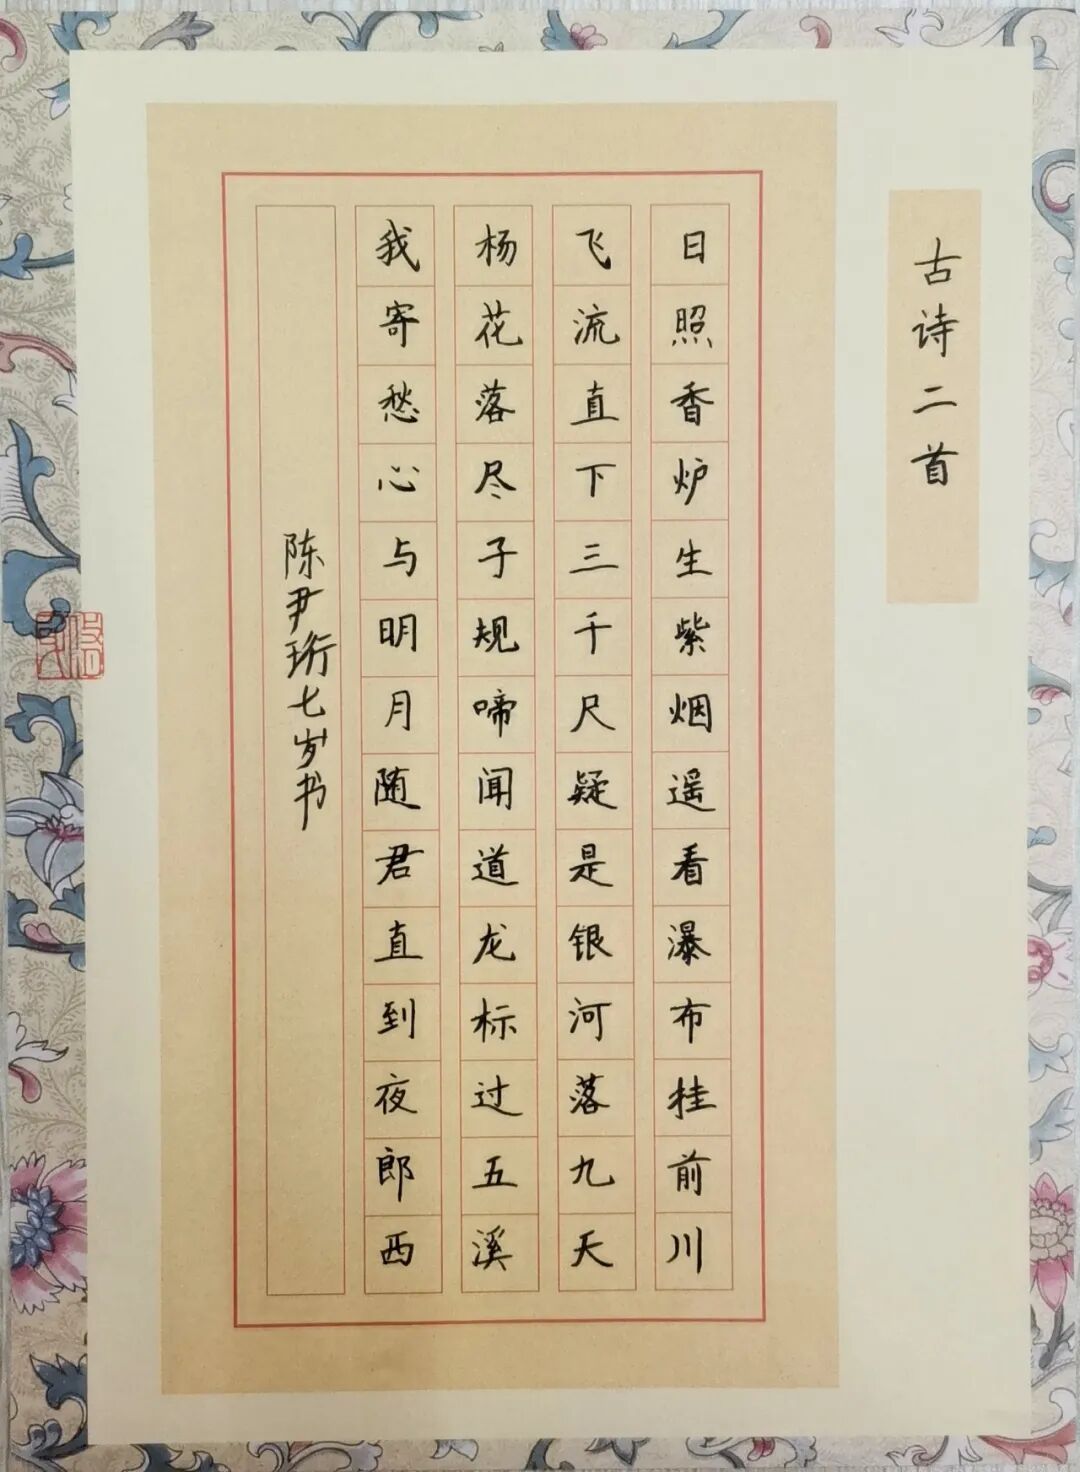 古诗二首
日照香炉生紫烟遥看瀑布桂前川
飞流直下三千尺疑是银河落九天
杨花落尽子规啼闻道龙标过五溪
我寄愁心与明月随君直到夜郎西
陈尹珩七岁书